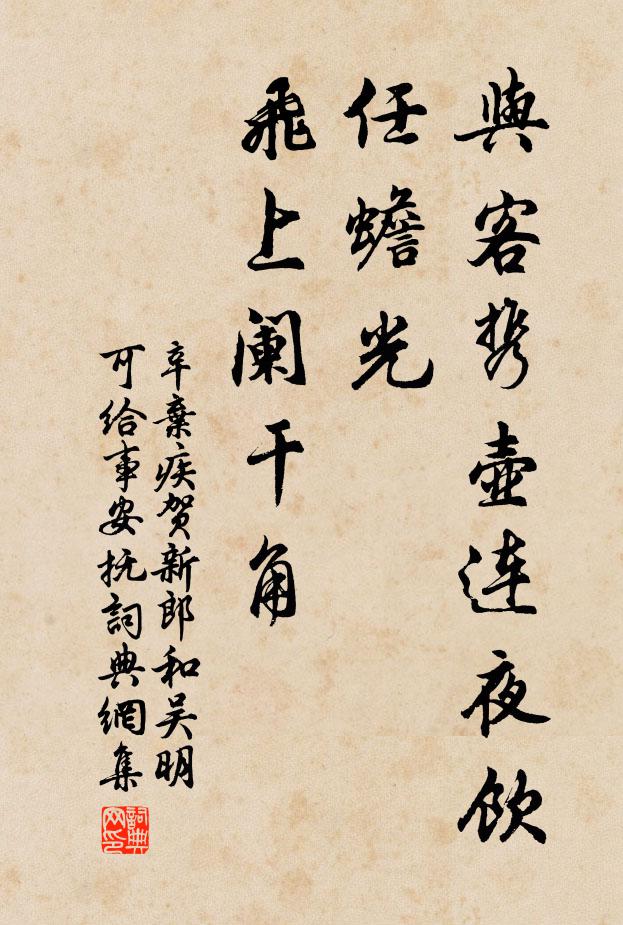 與客携壺连夜饮
任蟾光
飛上阑干角
辛棄疾贺新郎和吴明
可给事安抚詞典網集
詞典网印